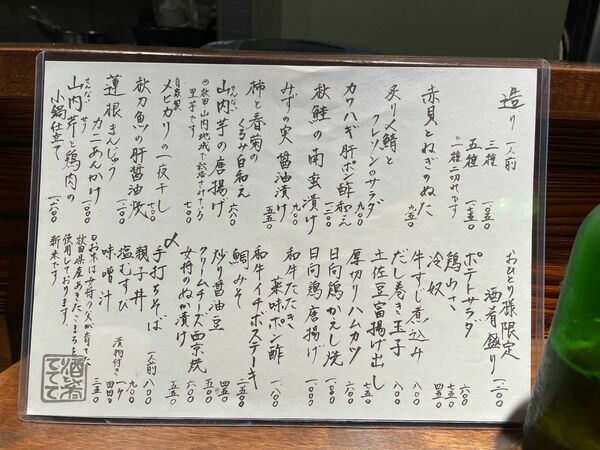 造り 一人前
三種 一、〇五〇
五種
○一種二切れです
赤貝とねぎのぬた 九五〇
炙り〆鯖と
クレソンのサラダ 九〇〇
カワハギ肝ポン酢和え 一、二〇〇
秋鮭の南蛮漬け 九〇〇
みずの実醤油漬け 五五〇
柿と春菊の
くるみ白和え 六八〇
山内芋の唐揚げ
さんない
◎秋田山内地域で
里芋です 七〇〇
自家製
メヒカリの一夜干し 七〇〇
秋刀魚の肝醤油焼
蓮根まんじゅう
カニあんかけ 一、一〇〇
さんない せり
山内芹と鶏肉の
小鍋仕立て 一、八〇〇
おひとり様限定
酒肴盛り
ポテトサラダ 六〇〇
鶏わさ 七五〇
冷奴 四五〇
牛すじ煮込み 八〇〇
だし巻き玉子 八〇〇
土佐豆富揚げ出し 七五〇
厚切りハムカツ
日向鶏かえし洗
日向鶏唐揚げ 一、〇〇〇
和牛たたき
薬味ポン酢 一、八〇〇
和牛イチボステーキ
鯛みそ 四五〇
炒り醤油豆 五〇〇
クリームチーズ西京焼 六〇〇
女将のぬか漬け 五五〇
〆
手打ちそば 一人前 八〇〇
親子丼 漬物付き 九〇〇
塩むすび 一ケ
味噌汁 三五〇
○お米は女将の父が育てた
秋田県産あきたこまちを
使用しております。
新米です。
酒肴
ててて